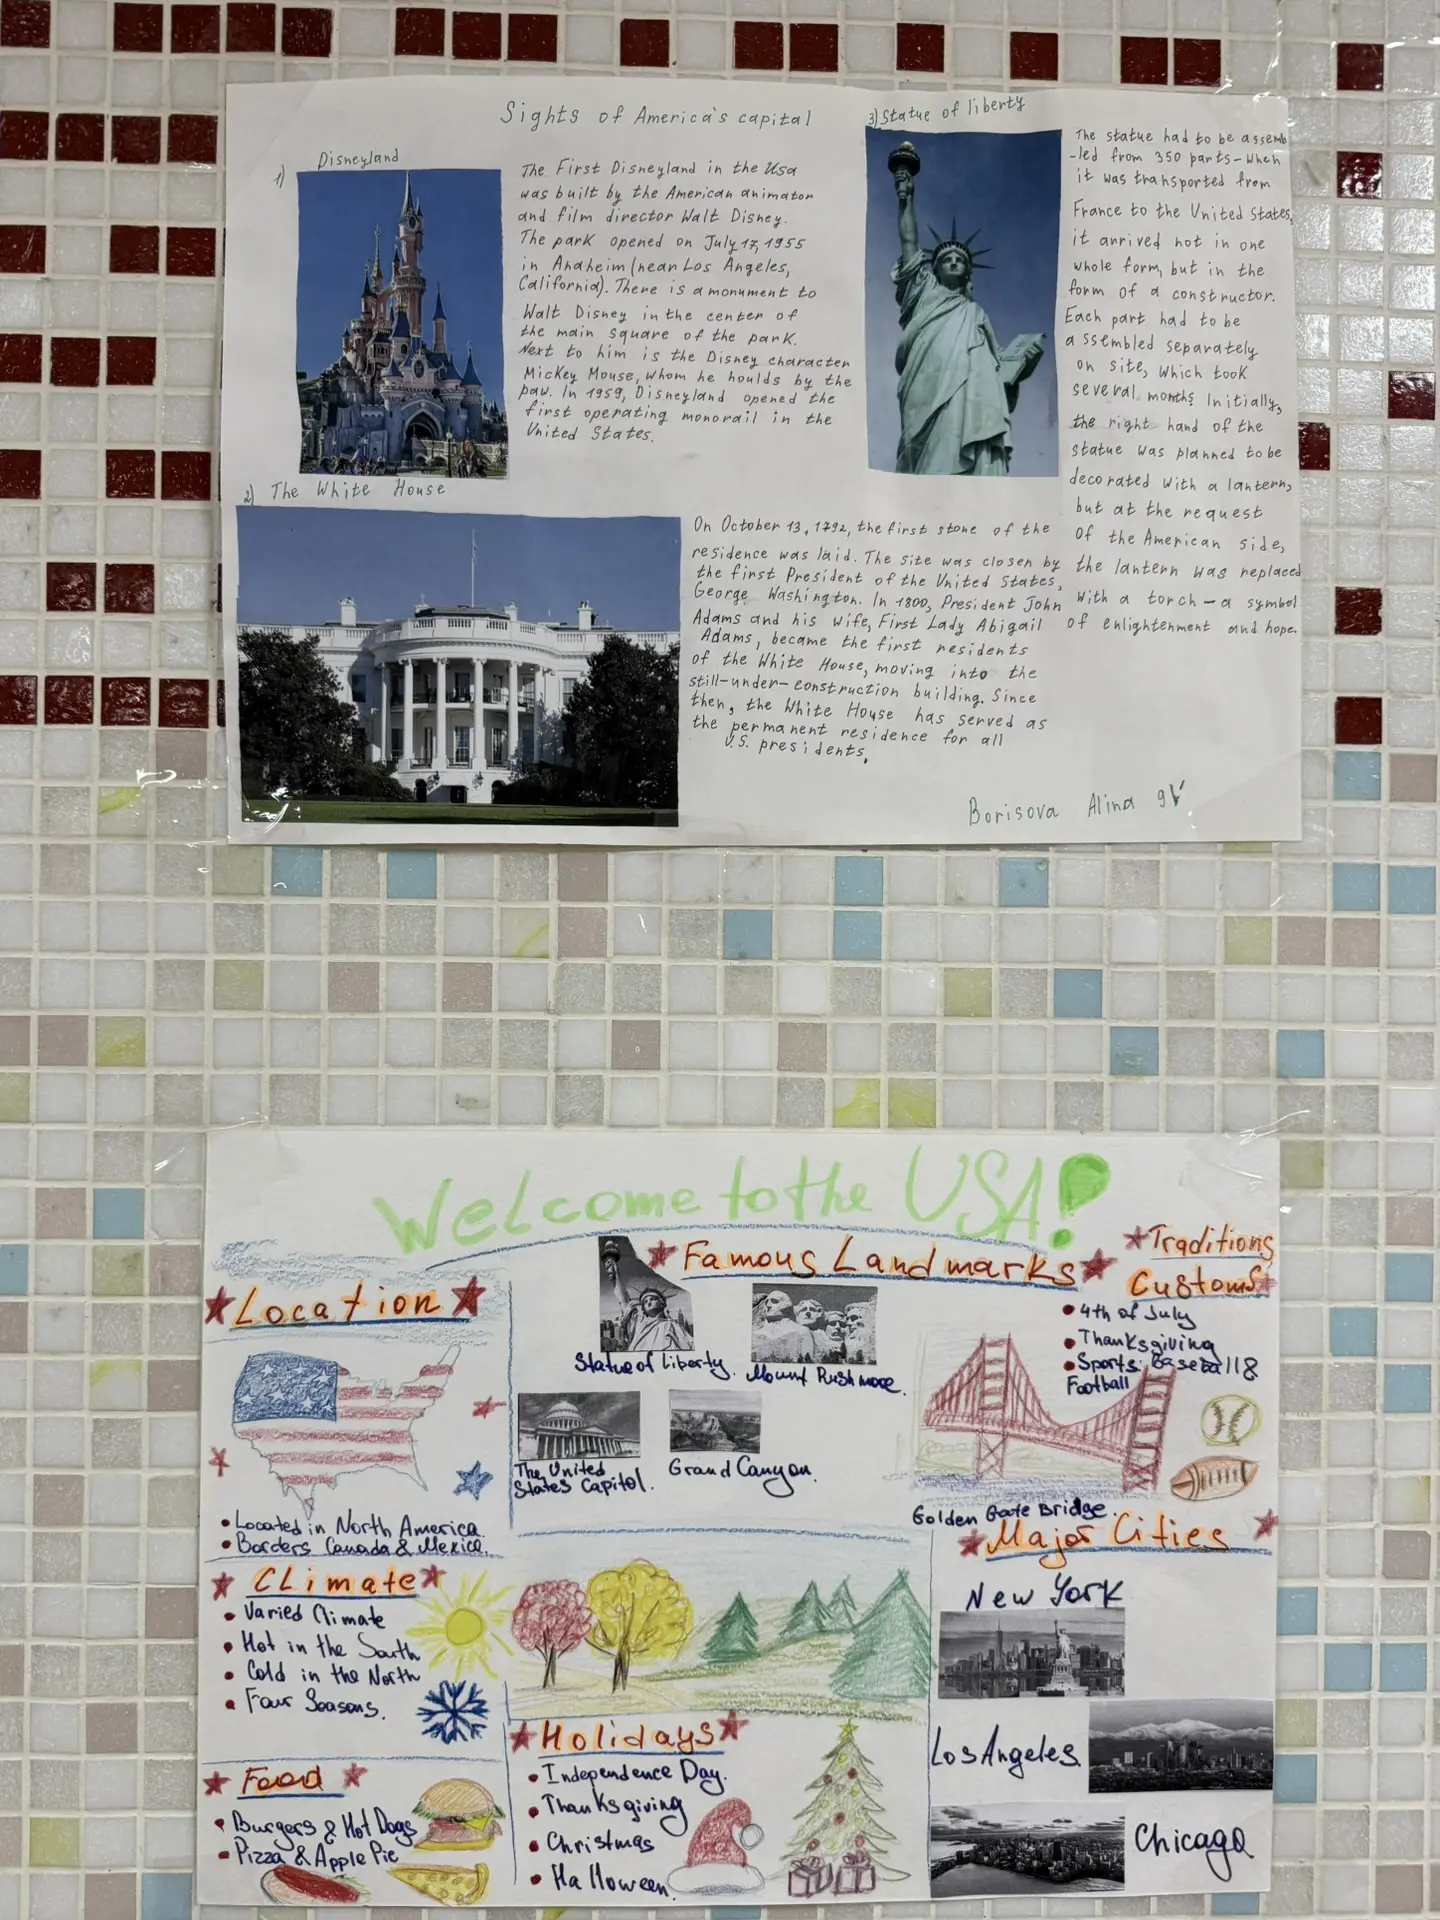 Sights of America's capital
1) Disneyland
The First Disneyland in the Usa
was built by the American animator
and film director Walt Disney.
The park opened on July 17, 1955
in Anaheim (near Los Angeles,
California). There is a monument to
Walt Disney in the center of
the main square of the park.
Next to him is the Disney character
Mickey Mouse, whom he houlds by the
paw. In 1959, Disneyland opened the
first operating monorail in the
United States.
2) The White House
On October 13, 1792, the first stone of the
residence was laid. The site was closen by
the first President of the United States,
George Washington. In 1800, President John
Adams and his wife, First Lady Abigail
Adams, became the first residents
of the White House, moving into the
still-under-construction building. Since
then, the White House has served as
the permanent residence for all
U.S. presidents.
3) Statue of liberty
The statue had to be assemb
-led from 350 parts - when
it was transported from
France to the United States,
it arrived not in one
whole form, but in the
form of a constructor.
Each part had to be
assembled separately
on site, which took
several months. Initially,
the right hand of the
statue was planned to be
decorated with a lantern,
but at the request
of the American side,
the lantern was replaced
with a torch - a symbol
of enlightenment and hope.
Borisova Alina 9
Welcome to the USA!
Location
• Located in North America
• Borders Canada & Mexico.
Climate
• Varied Climate
• Hot in the South
• Cold in the North
• Four Seasons.
Food
• Burgers & Hot Dogs
• Pizza & Apple Pie
Famous Landmarks
Statue of Liberty.
Mount Rushmore.
The United
States Capitol.
Grand Canyon.
Holidays
• Independence Day.
• Thanksgiving
• Christmas
• Halloween.
Traditions
Customs
• 4th of July
• Thanksgiving
• Sports: Baseball &
Football
Golden Gate Bridge.
Major Cities
New York
Los Angeles
Chicago